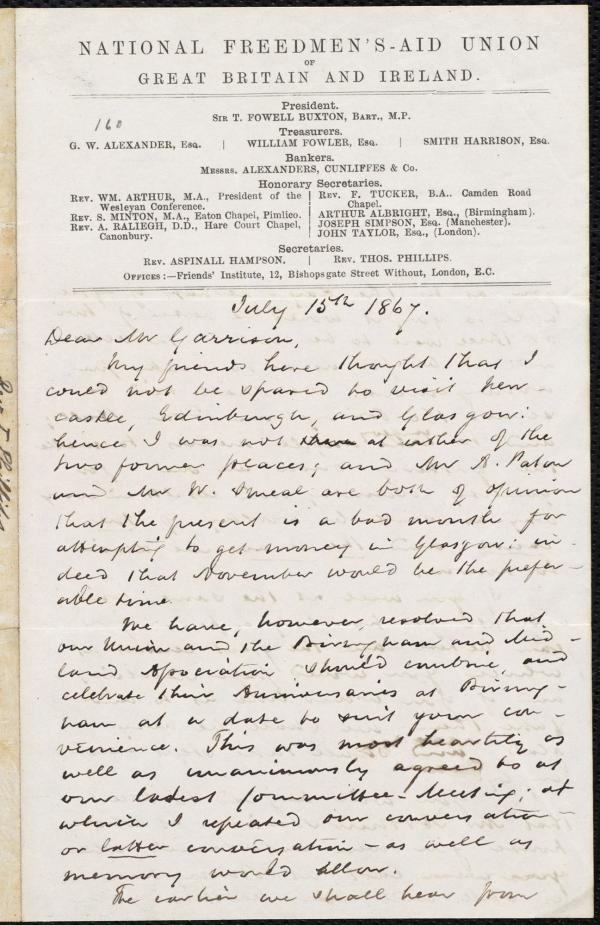 NATIONAL FREEDMEN'S-AID UNION
OF
GREAT BRITAIN AND IRELAND.
President.
SIR T. FOWELL BUXTON, BART., M.P.
160
Treasurers.
G. W. ALEXANDER, ESQ. | WILLIAM FOWLER, ESQ. | SMITH HARRISON, ESQ.
Bankers.
MESSRS. ALEXANDERS, CUNLIFFES & Co.
Honorary Secretaries.
REV. WM. ARTHUR, M.A., President of the
Wesleyan Conference.
REV. S. MINTON, M.A., Eaton Chapel, Pimlico.
REV. A. RALIEGH, D.D., Hare Court Chapel,
Canonbury.
REV. F. TUCKER, B.A.. Camden Road
Chapel.
ARTHUR ALBRIGHT, ESQ., (Birmingham).
JOSEPH SIMPSON, ESQ. (Manchester).
JOHN TAYLOR, ESQ., (London).
Secretaries.
REV. ASPINALL HAMPSON. | REV. THOS. PHILLIPS.
OFFICES:—Friends' Institute, 12, Bishopsgate Street Without, London, E.C.
July 15th 1867.
Dear Mr Garrison,
My friends have thought that I
could not be spared to visit New-
castle, Edinburgh, and Glasgow:
hence I was not at either of the
two former places; and Mr A. Paton
and Mr W. Smeal are both of opinion
that the present is a bad month for
attempting to get money in Glasgow: in-
deed that November would be the prefer-
able time.
We have, however, resolved that
our Union and the Birmingham and Mid-
land Association should combine, and
celebrate their Anniversaries at Birming-
ham at a date to suit your con-
venience. This was most heartily as
well as unanimously agreed to at
our latest Committee-Meeting; at
which I repeated our conversation -
or latter conversation - as well as
memory would allow.
The earlier we shall hear from